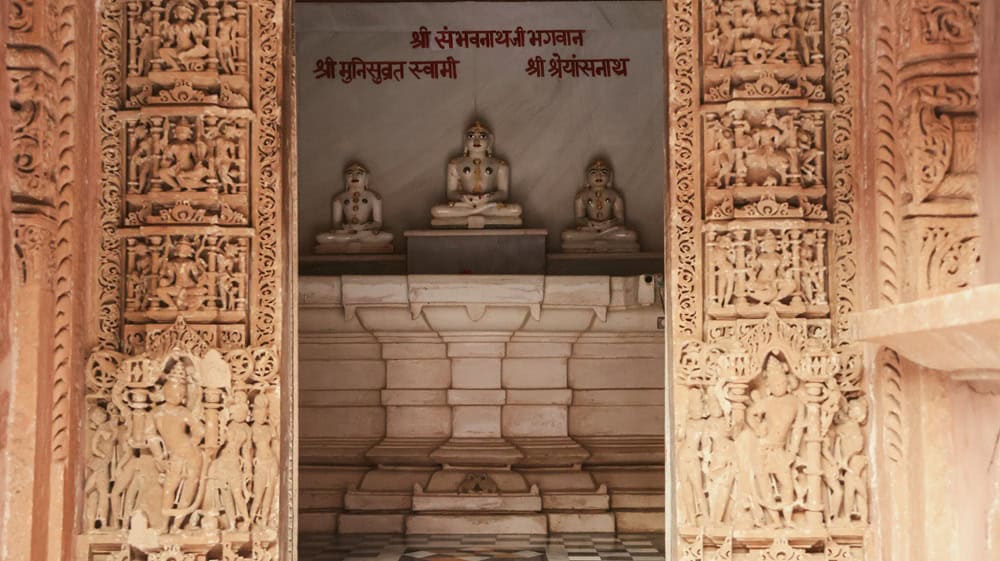 श्री संभवनाथजी भगवान
श्री मुनिसुव्रत स्वामी
श्री श्रेयांसनाथ